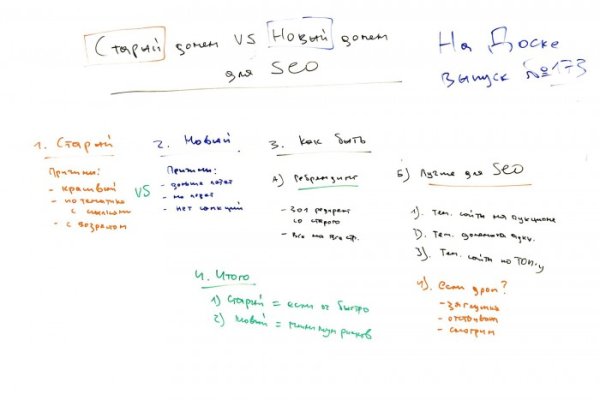 Старый домен VS Новый домен
для SEO
На Доске
выпуск №173
1. Старый
Причины:
- красивый
- по тематике
с ссылками
- с возрастом
VS
2. Новый
Причины:
- дольше
- не
- нет санкций
3. Как быть
А) Ребрендинг
- 301 редирект
со старого
- Все на все стр.
Б) Лучше для SEO
1). Тем. сайты на аукционе
2). Тем. домены
3). Тем. сайты по ТОП-у
4). Если дроп?
- заглушка
- смотрим
4. Итого
1) Старый = если ок быстро
2) Новый = минимум рисков